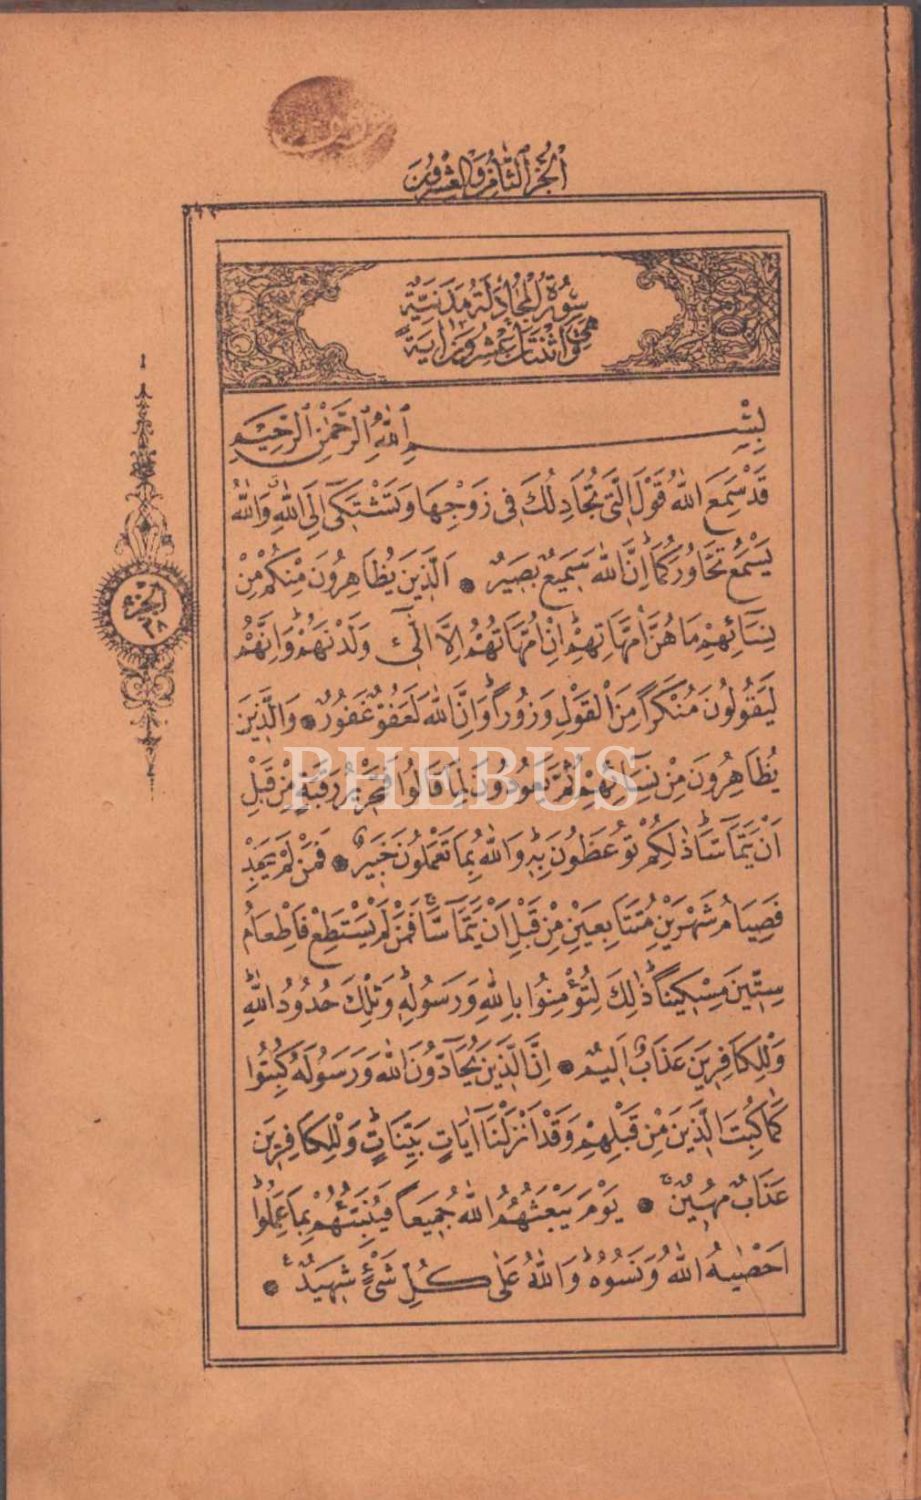 الجزء الثامن والعشرون
٥٤٢
سورة المجادلة مدنية
وهي اثنتان وعشرون اية
بِسْمِ اللّٰهِ الرَّحْمٰنِ الرَّحِيمِ
قَدْ سَمِعَ اللّٰهُ قَوْلَ الَّتِى تُجَادِلُكَ فِى زَوْجِهَا وَتَشْتَكِىٓ اِلَى اللّٰهِۗ وَاللّٰهُ
يَسْمَعُ تَحَاوُرَكُمَاۜ اِنَّ اللّٰهَ سَمِيعٌ بَصِيرٌ ۞ اَلَّذِينَ يُظَاهِرُونَ مِنْكُمْ مِنْ
نِسَٓائِهِمْ مَا هُنَّ اُمَّهَاتِهِمْۜ اِنْ اُمَّهَاتُهُمْ اِلَّا الّٰٓئِ وَلَدْنَهُمْۜ وَاِنَّهُمْ
لَيَقُولُونَ مُنْكَرًا مِنَ الْقَوْلِ وَزُورًاۜ وَاِنَّ اللّٰهَ لَعَفُوٌّ غَفُورٌ ۞ وَالَّذِينَ
يُظَاهِرُونَ مِنْ نِسَٓائِهِمْ ثُمَّ يَعُودُونَ لِمَا قَالُوا فَتَحْرِيرُ رَقَبَةٍ مِنْ قَبْلِ
اَنْ يَتَمَٓاسَّاۜ ذٰلِكُمْ تُوعَظُونَ بِهِۜ وَاللّٰهُ بِمَا تَعْمَلُونَ خَبِيرٌ ۞ فَمَنْ لَمْ يَجِدْ
فَصِيَامُ شَهْرَيْنِ مُتَتَابِعَيْنِ مِنْ قَبْلِ اَنْ يَتَمَٓاسَّاۚ فَمَنْ لَمْ يَسْتَطِعْ فَاِطْعَامُ
سِتِّينَ مِسْكِينًاۜ ذٰلِكَ لِتُؤْمِنُوا بِاللّٰهِ وَرَسُولِهِۜ وَتِلْكَ حُدُودُ اللّٰهِۜ
وَلِلْكَافِرِينَ عَذَابٌ اَلِيمٌ ۞ اِنَّ الَّذِينَ يُحَٓادُّونَ اللّٰهَ وَرَسُولَهُ كُبِتُوا
كَمَا كُبِتَ الَّذِينَ مِنْ قَبْلِهِمْ وَقَدْ اَنْزَلْنَٓا اٰيَاتٍ بَيِّنَاتٍۜ وَلِلْكَافِرِينَ
عَذَابٌ مُهِينٌۚ ۞ يَوْمَ يَبْعَثُهُمُ اللّٰهُ جَمِيعًا فَيُنَبِّئُهُمْ بِمَا عَمِلُواۜ
اَحْصٰيهُ اللّٰهُ وَنَسُوهُۜ وَاللّٰهُ عَلٰى كُلِّ شَىْءٍ شَهِيدٌۚ ۞
الجزء
٢٨
PHEBUS